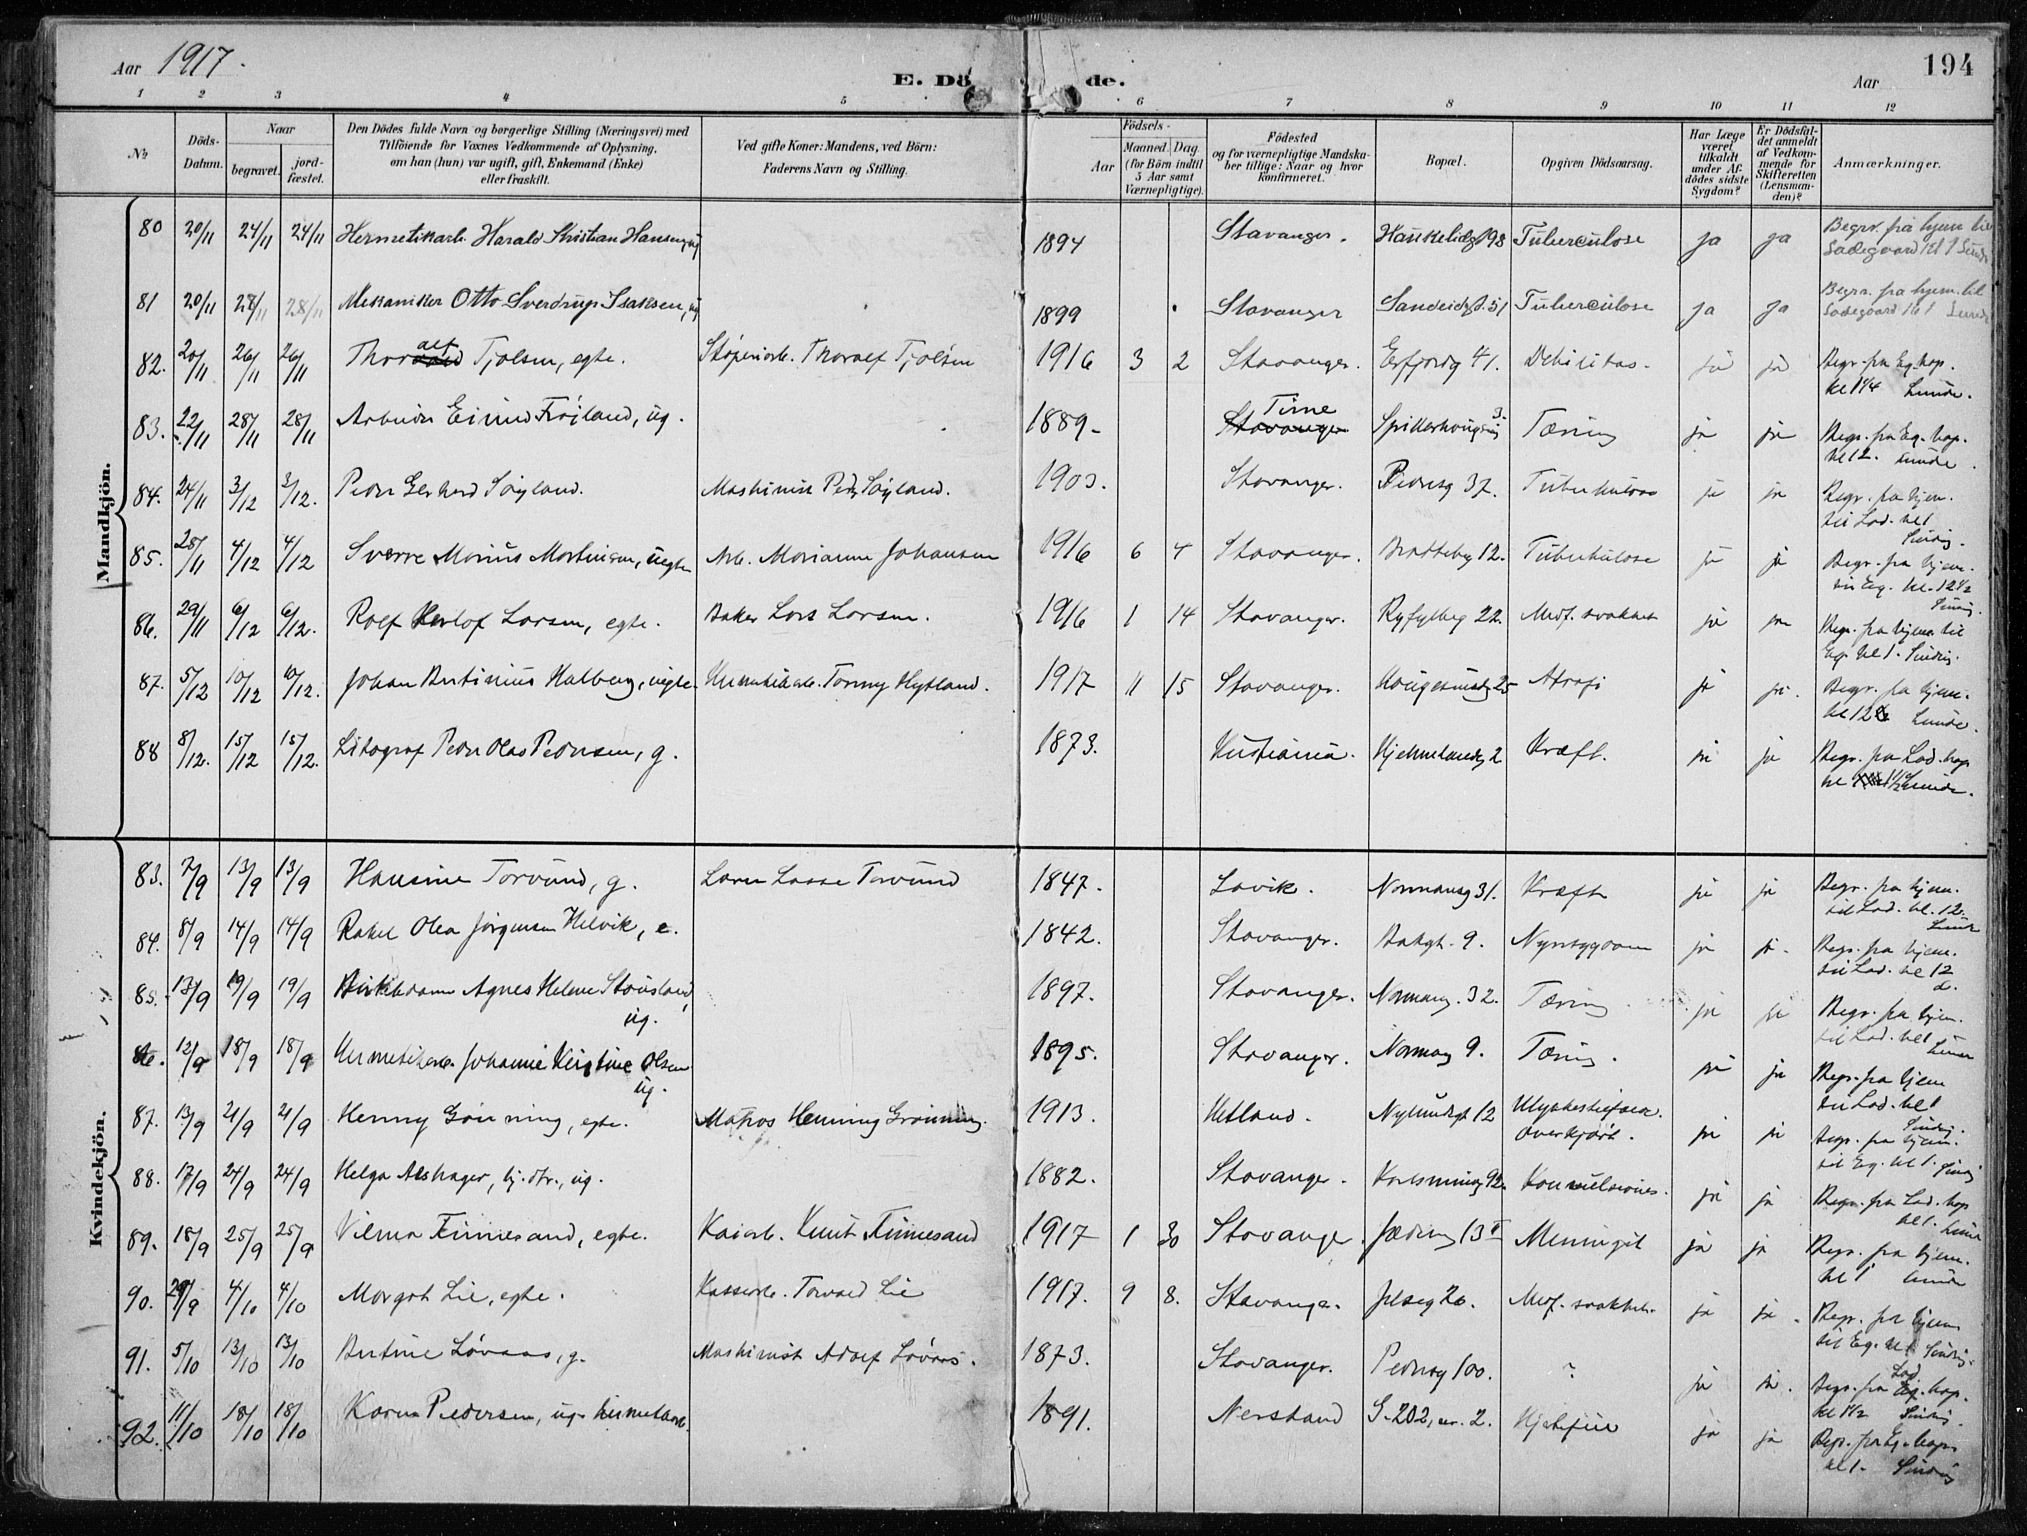 Aar 1917.
E. Dö de.
Aar
194
1 2 3 4 5 6 7 8 9 10 11 12
№
Döds-Datum.
Naar
begravet.
jord-fæstet.
Den Dödes fulde Navn og borgerlige Stilling (Næringsvei) med
Tilföiende for Voxnes Vedkommende af Oplysning,
om han (hun) var ugift, gift, Enkemand (Enke)
eller fraskilt.
Ved gifte Koner: Mandens, ved Börn:
Faderens Navn og Stilling.
Födsels-
Aar
Maaned. Dag.
(for Börn indtil
5 Aar samt
Værnepligtige).
Födested
og for værnepligtige Mandska-
ber tillige: Naar og hvor
konfirmeret.
Bopæl.
Opgiven Dödsaarsag.
Har Læge
været
tilkaldt
under Af-
dödes sidste
Sygdom?
Er Dödsfal-
det anmeldt
af Vedkom-
mende for
Skifteretten
(Lensman-
den)?
Anmærkninger.
Mandkjön.
80 20/11 24/11 24/11 Hermetikarb. Harald Kristian Hansen, ug 1894 Stavanger. Haukeligt 98 Tuberculose ja ja Begrv. fra hjem til
Ladegaard kl 1 Lunde
81 20/11 28/11 28/11 Mekaniker Otto Sverdrup Isaksen, ug 1899 Stavanger Sandeidgt. 51 Tuberculose ja ja Begrv. fra hjem til
Ladegaard kl 1 Lunde
82. 20/11 26/11 26/11 Thoralf Tjølsen, egte. Støperiarb. Thoralf Tjølsen 1916 3 2 Stavanger. Erfjordg 41. Debilitas. ja ja Begr. fra Eg. kap.
kl 1 1/4 Lunde.
83. 22/11 28/11 28/11 Arbeider Eivind Frøiland, ug. 1889 Time
Stavanger Tæring ja ja Begr. fra Eg. kap.
kl 12. Lunde.
84. 24/11 3/12 3/12. Peder Gerhard Søyland. Maskinist Peder Søyland. 1903. Stavanger. Pedersg 37. Tuberkulose ja ja Begr. fra hjem.
til Lad. kl 1
Sindig.
85. 28/11 4/12 4/12 Sverre Marius Martinsen, uegte Arb. Marianne Johansen 1916 6 4 Stavanger. Brattebg 12. Tuberkulose ja ja Begr. fra hjem.
til Eg. kl. 12 1/2
Sindig.
86. 29/11 6/12 6/12. Rolf Herlof Larsen, egte. Baker Lars Larsen. 1916 1 14 Stavanger. Ryfylkeg 22. Medf. svakhet ja ja Begr. fra hjem til
Eg. kl 1. Sindig.
87. 5/12 10/12 10/12. Johan Bertinius Halberg, uegte. Hermetikarb. Tormy Hytland. 1917 11 15 Stavanger. Haugesundsg 25 Atrofi ja ja. Begr. fra hjem.
kl 12 Lunde.
88 8/12. 15/12 15/12. Litograf Peder Olas Pedersen, g. 1873. Kristiania. Hjelmelandsg 2 Kræft. ja ja Begr. fra Lad. kap
kl 1 1/2 Lunde.
Kvindekjön.
83. 7/9 13/9 13/9 Hansine Torvund, g. Lasse Torvund 1847. Lavik. Normansg 31. Kræft ja ja Begr. fra hjem.
til Lad. kl. 12.
Lunde
84. 8/9 14/9 14/9 Rakel Olea Jørgensen Helvik, e. 1842. Stavanger. Bakgt. 9. Nyresygdom ja ja. Begr. fra hjem.
til Lad. kl 12
85. 13/9 19/9 19/9 Butikdame Agnes Helene Stousland,
ug. 1897. Stavanger. Normansg. 32. Tæring. ja ja Begr. fra hjem.
til Lad. kl 1
Lunde
86. 12/9 18/9 18/9 Hermetikarb. Johanne Kristine Olsen
ug. 1895. Stavanger. Normansg 9. Tæring. ja ja Begr. fra hjem
til Lad. kl 1
Sindig.
87. 13/9 21/9 21/9 Henny Grønning, egte. Matros Henning Grønning. 1913. Hetland. Nylundsgt 12 Ulykkestilfælde.
Overkjørt. ja ja Begr. fra hjem.
til Eg. kl 1. Sindig
88. 17/9 24/9 24/9 Helga Alshager, hj. dtr., ug. 1882. Stavanger. Karlsminneg 92. Konvulsiones. ja ja Begr. fra Lad. kap
kl 1. Lunde
89. 18/9 25/9 25/9 Vilma Finnesand, egte. Kaiarb. Knut Finnesand 1917 1 30 Stavanger. Jædervg 13 Meningit ja ja Begr. fra hjem.
kl 1 Lunde
90. 29/9 4/10 4/10 Margot Lie, egte. Kassearb. Torvald Lie 1917. 9 8. Stavanger. Jelsag 26. Medf. svakhet. ja ja. Begr. fra hjem
til Eg. kl 1 Sindig.
91. 5/10 13/10 13/10 Bertine Løvaas, g. Maskinist Adolf Løvaas. 1873. Stavanger. Pedersg 100. ? ja ja. Begr. fra Lad kap.
kl 1 1/2 Sindig.
92. 11/10 18/10 18/10 Karen Pedersen, ug. hermetarb. 1891. Nerstrand G. 202, nr. 2. Hjertefeil ja ja Begr. fra Eg. kap.
kl 1. Sindig